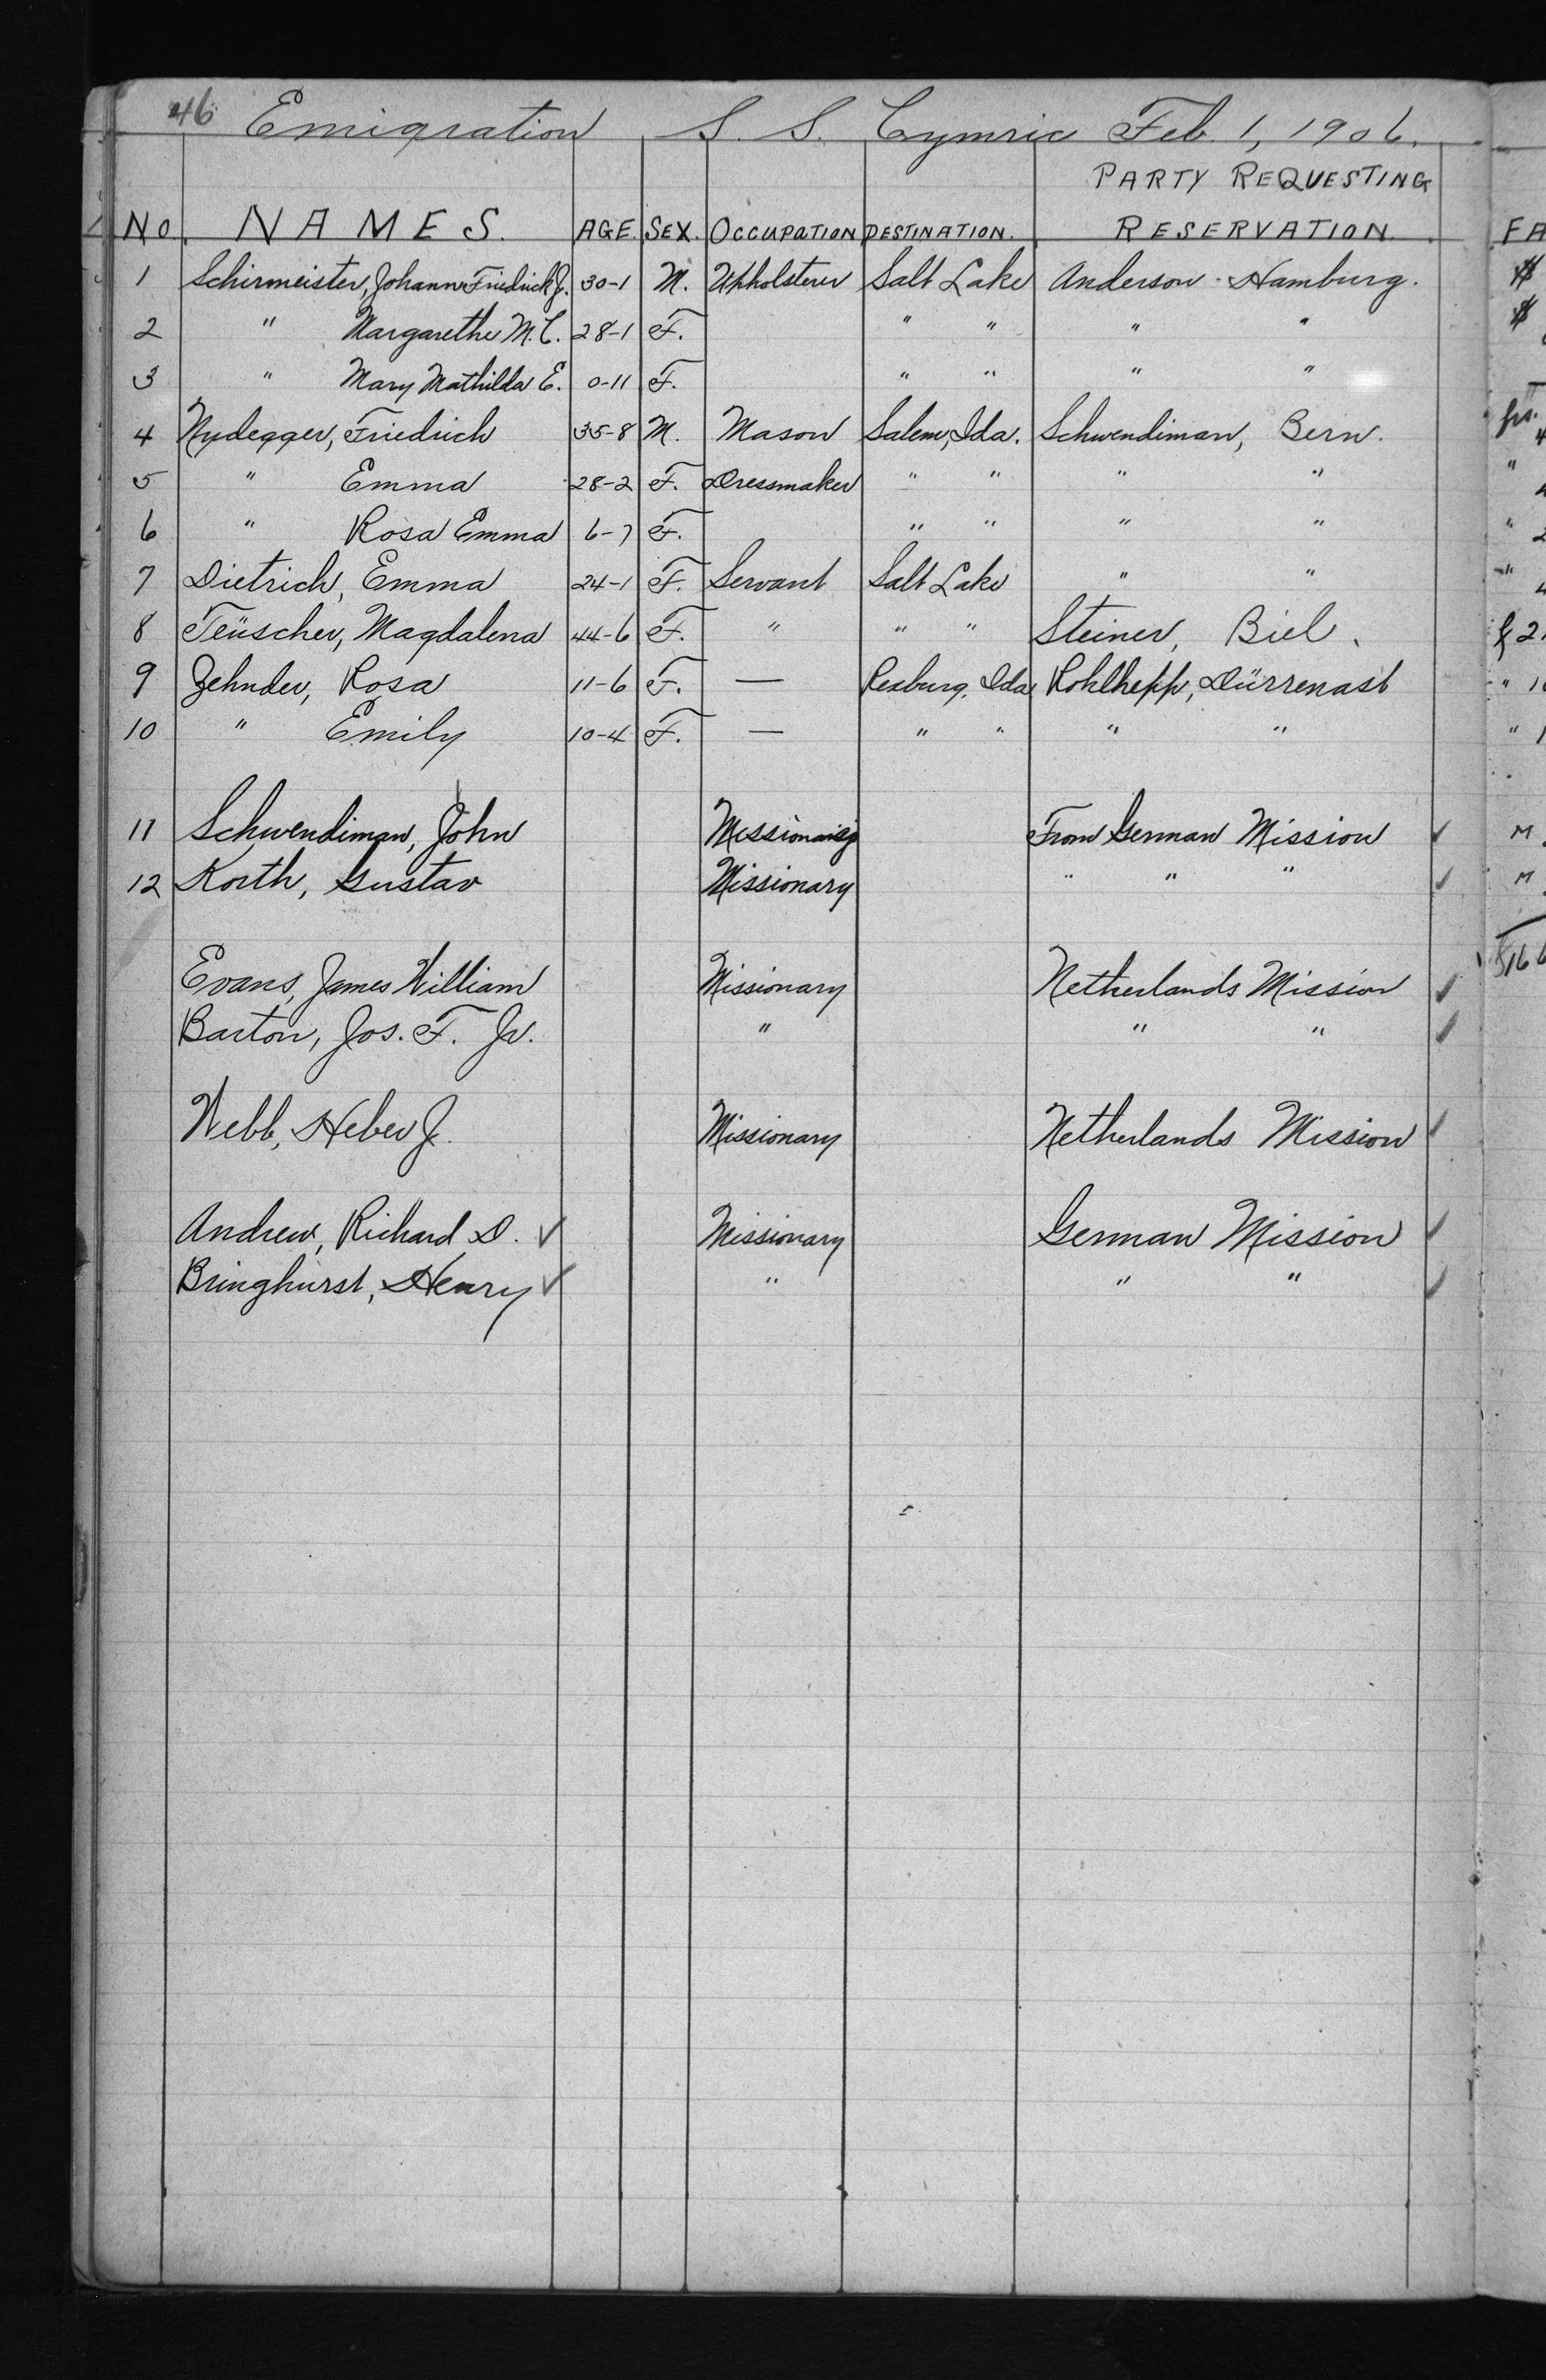 46 Emigration S. S. Cymric Feb. 1, 1906.
PARTY REQUESTING
No. NAMES. AGE. SEX. OCCUPATION DESTINATION. RESERVATION. FA
1 Schirmeister, Johann Friedrich J. 30-1 M. Upholsterer Salt Lake Anderson - Hamburg. $
2 " Margarethe M. C. 28-1 F. " " " " $
3 " Mary Mathilda E. 0-11 F. " " " "
4 Nydegger, Friedrich 35-8 M. Mason Salem, Ida. Schwendiman, Bern.
5 " Emma 28-2 F. Dressmaker " " " " "
6 " Rosa Emma 6-7 F. " " " " " 2
7 Dietrich, Emma 24-1 F. Servant Salt Lake " " "
8 Teüscher, Magdalena 44-6 F. " " " Steiner, Biel. 2
9 Zehnder, Rosa 11-6 F. — Rexburg, Ida. Kohlhepp, Dürrenast " 1
10 " Emily 10-4 F. — " " " " " 1
11 Schwendiman, John Missionary From German Mission ✓ M
12 Korth, Gustav Missionary " " " ✓ M
Evans, James William Missionary Netherlands Mission ✓
Barton, Jos. F. Jr. " " " ✓
Webb, Heber J. Missionary Netherlands Mission ✓
Andrew, Richard D. ✓ Missionary German Mission ✓
Bringhurst, Henry ✓ " " " ✓